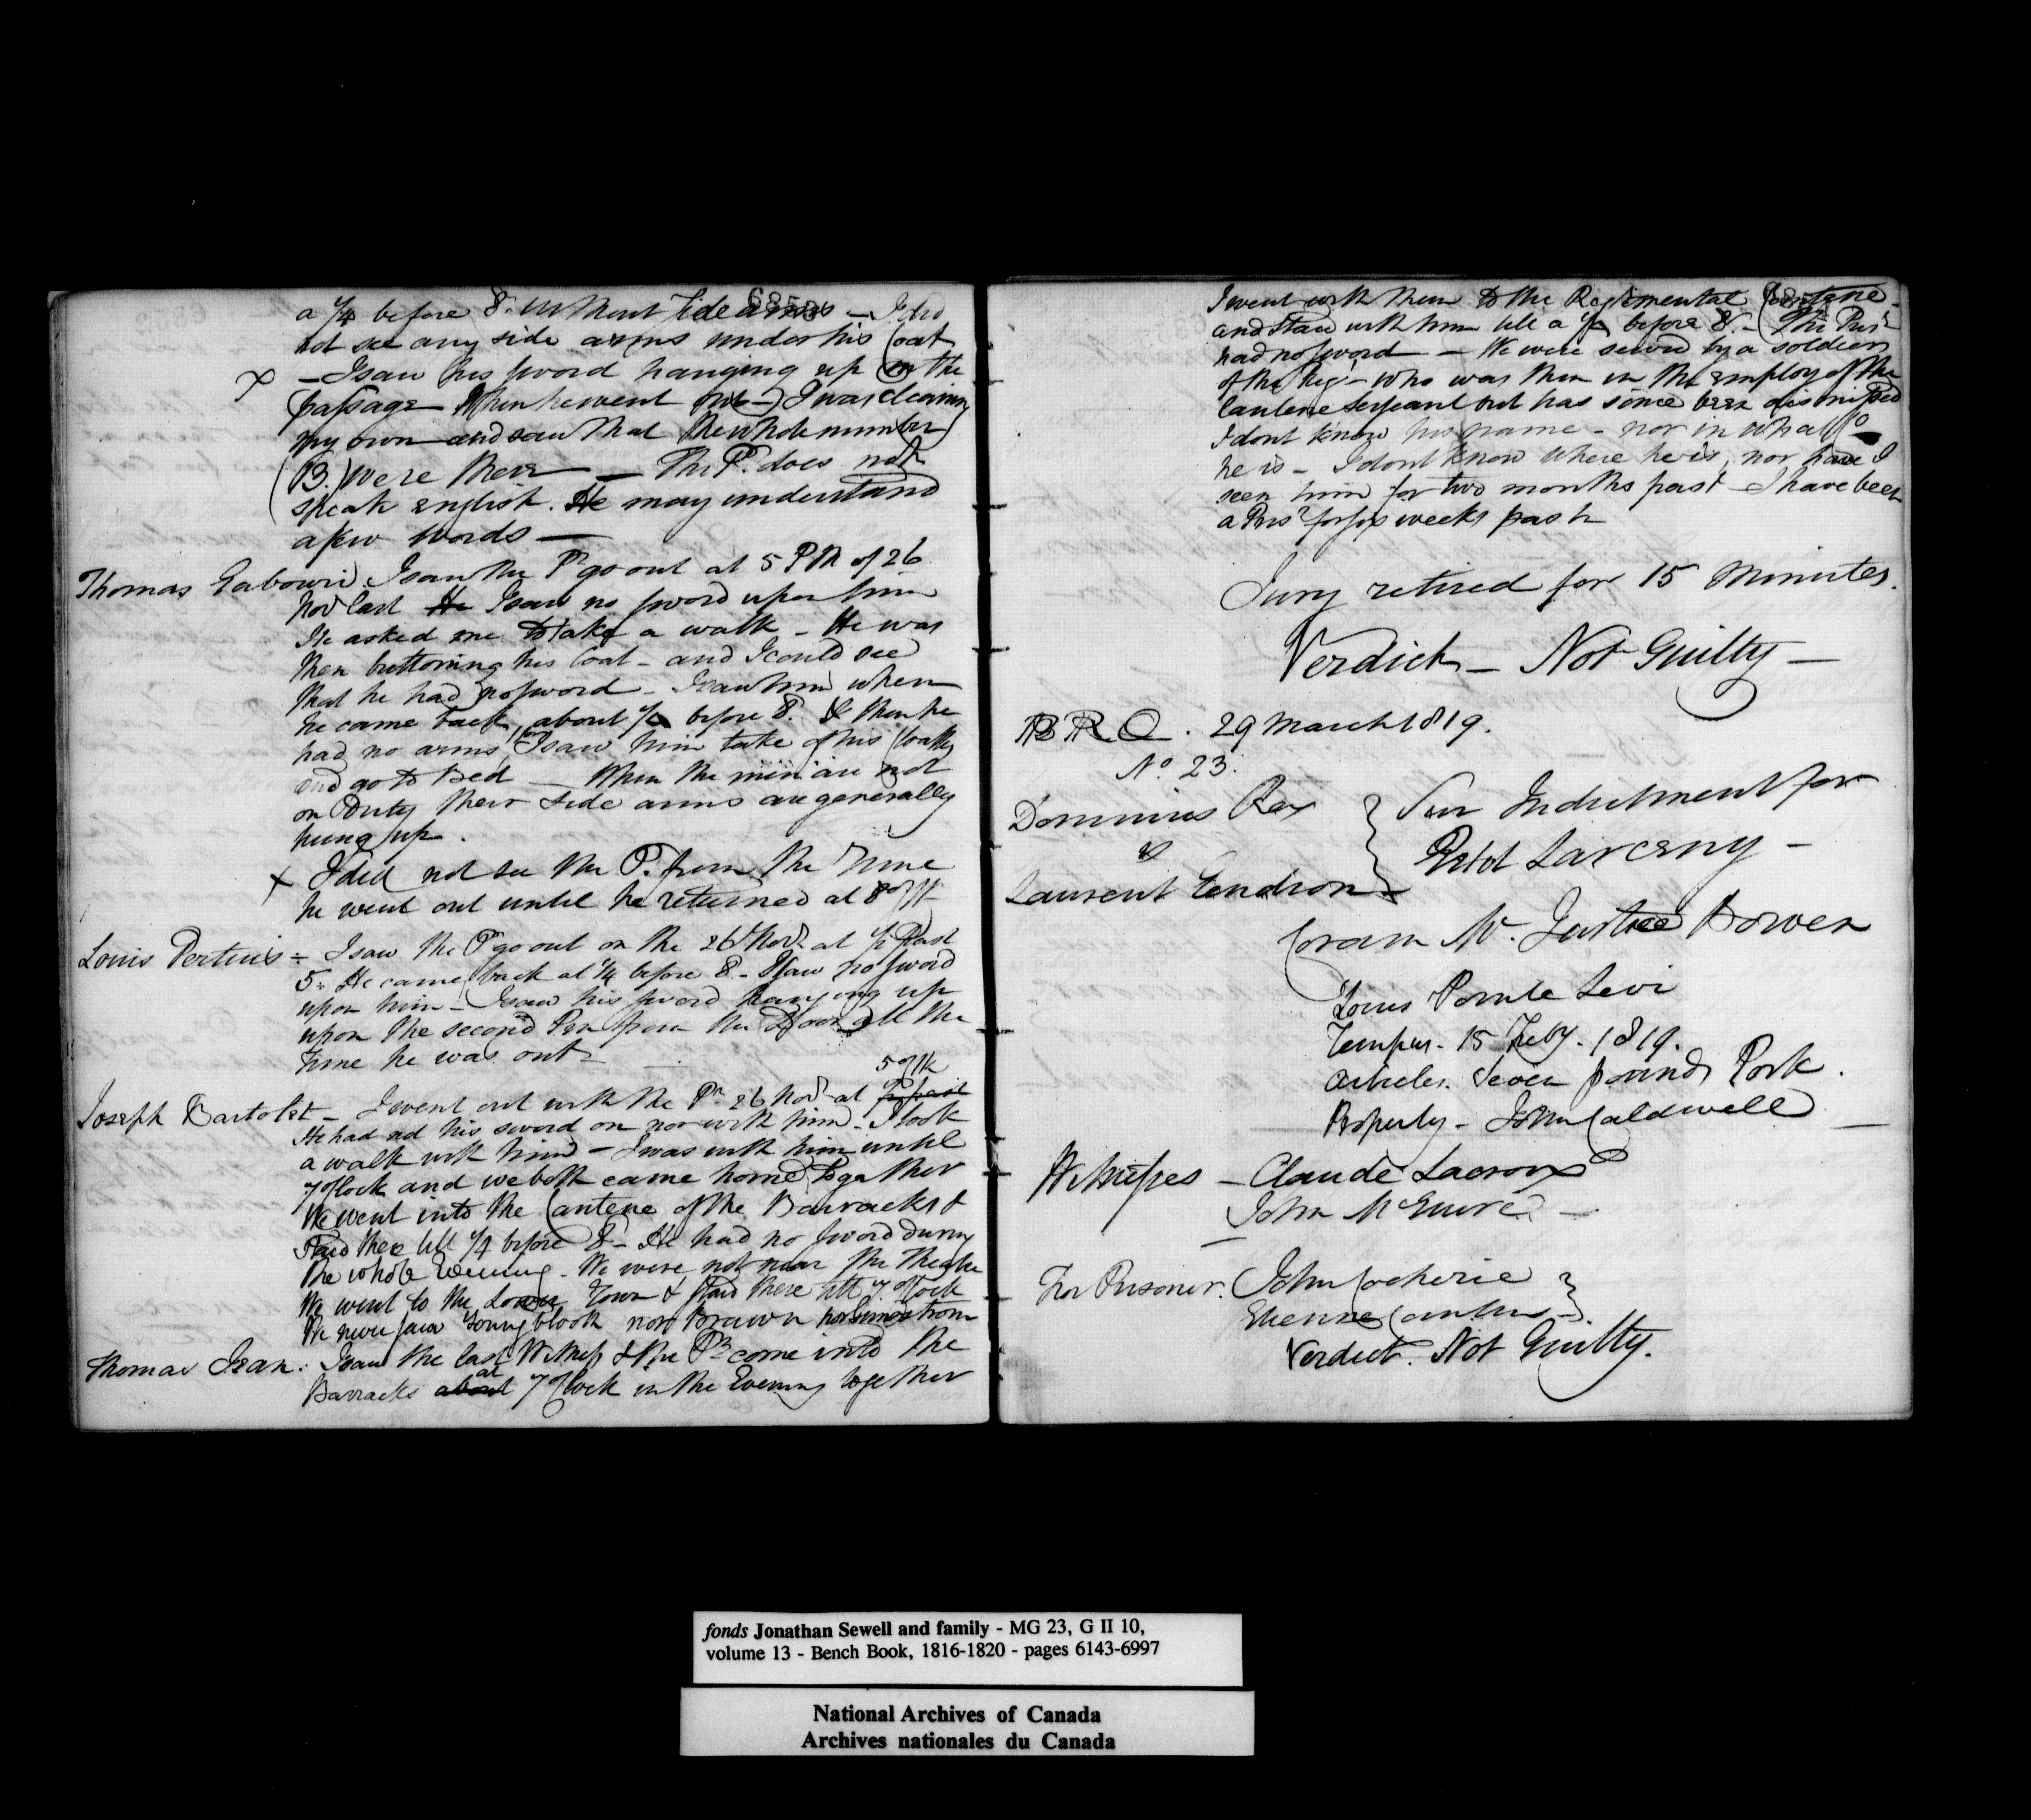 6853
a 1/4 before 8. Without side arms — I did
not see any side arms under his Coat
x — I saw his sword hanging up in the
passage when he went out — I was cleaning
my own and saw that the whole number
(13.) were there — The P. does not
speak English. He may understand
a few words —
Thomas Gabouri. I saw the Pr go out at 5 PM of 26
Novr last He I saw no sword upon him
He asked me to take a walk — He was
then buttoning his Coat — and I could see
that he had no sword — I saw him when
he came back, about 1/4 before 8. & then he
had no arms, for I saw him take off his Coat
and go to Bed — When the men are not
on Duty their side arms are generally
hung up.
x I did not see the P. from the time
he went out until he returned at 8 o'Ck
Louis Pertuis — I saw the Pr go out on the 26 Novr at 1/2 Past
5. He came back at 1/4 before 8 — I saw no sword
upon him — I saw his sword hanging up
upon the second Pin from the Door all the
time he was out —
5 o'Ck
Joseph Bartolet — I went out with the Pr 26 Novr at
He had not his sword on nor with him — I took
a walk with him — I was with him until
7 o'Clock and we both came home together
We went into the Cantene of the Barracks &
staid there till 1/4 before 8 — He had no sword during
the whole Evening — We were not near the Theatre
We went to the Lower Town & staid there till 7 o'Clock
We never saw Youngblood nor Brown nor
Thomas Jean. I saw the last Witness & the Pr come into the
at
Barracks about 7 o'Clock in the Evening together
I went with them to the Regimental Cantene —
and staid with him till a 1/4 before 8. — The Prisr
had no sword — We were served by a soldier
of the Regt — who was then in the employ of the
Cantene Serjeant but has since been dismissed
I dont know his name — nor in what Co
he is — I dont know where he is, nor have I
seen him for two months past — I have been
a Prisr for six weeks past
Jury retired for 15 Minutes.
Verdict — Not Guilty —
29 March 1819.
No. 23.
Dominus Rex
vs
Laurent Gendron
} Sur Indictment for
Petit Larceny —
Coram Mr. Justice Bowen
Locus Pointe Levi
Tempus — 15 Feby. 1819.
Articles. Seven pounds Pork.
Property — John Caldwell —
Witnesses — Claude Lacroix
John McGuire —
For Prisoner. John
Etienne
Verdict. Not Guilty.
fonds Jonathan Sewell and family - MG 23, G II 10,
volume 13 - Bench Book, 1816-1820 - pages 6143-6997
National Archives of Canada
Archives nationales du Canada